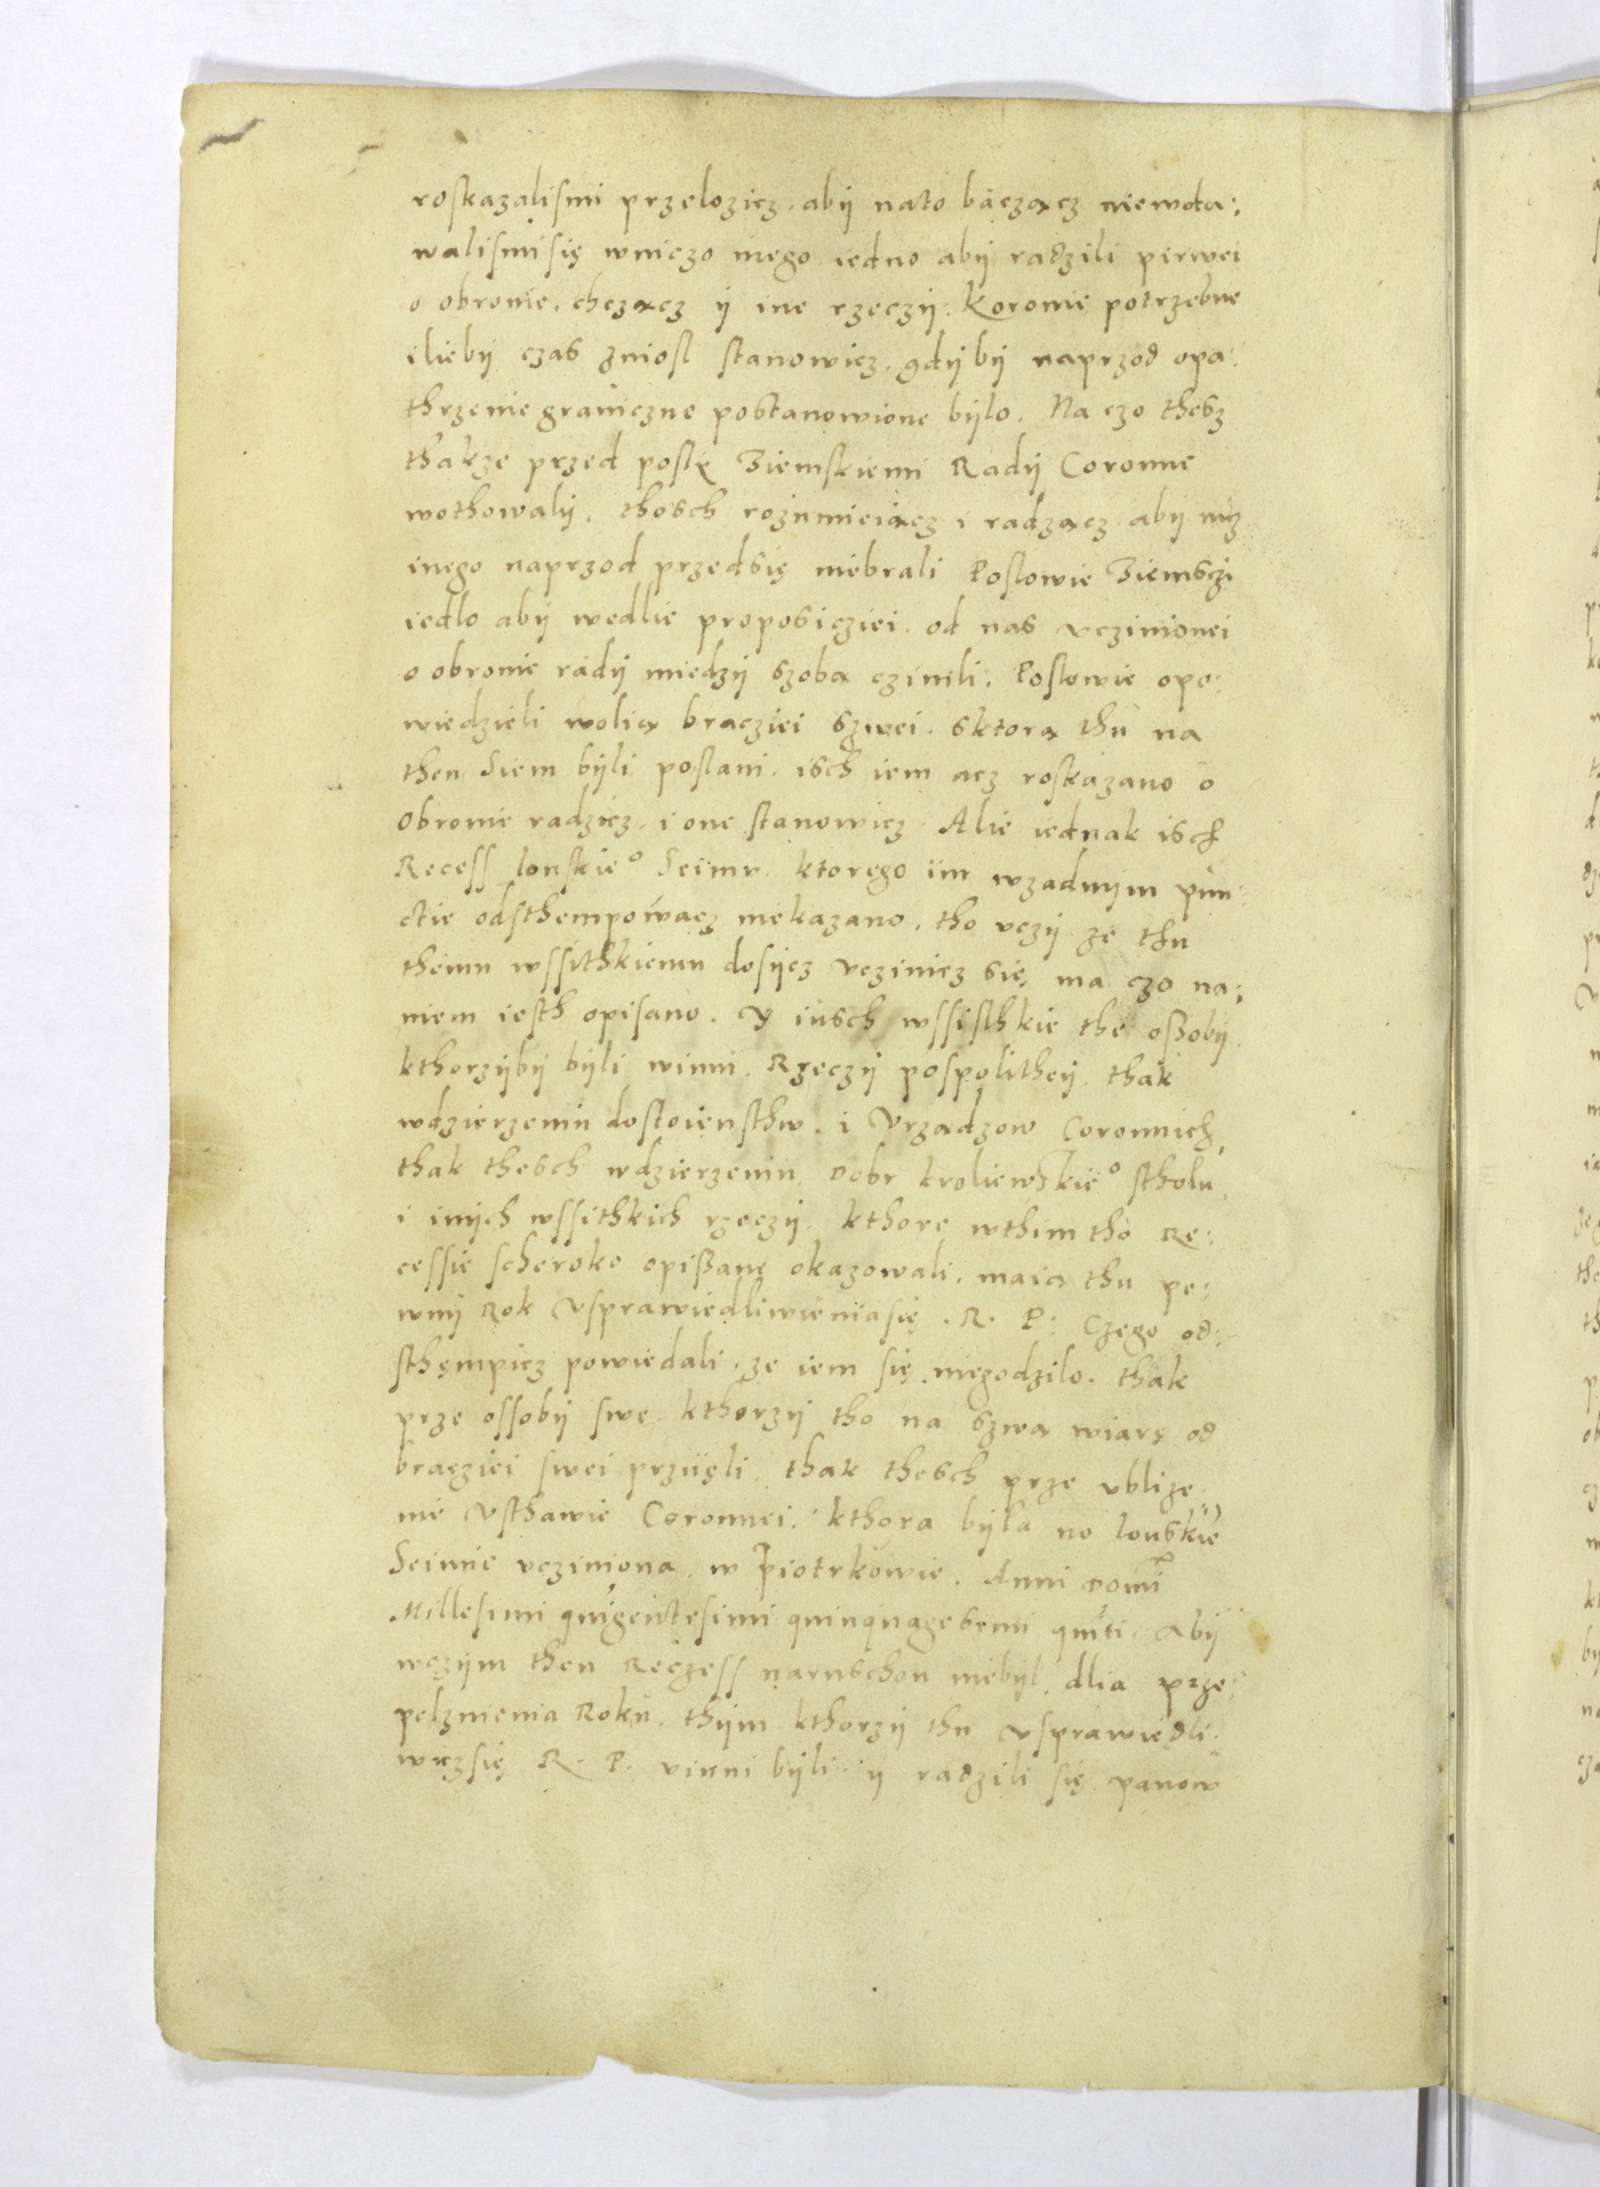 roskazalismi przelozicz. abÿ nato bacząncz niewda:
walismi się wniczo inego iedno abÿ radzili pirwei
o obronie. chcząncz ÿ ine rzeczÿ: Koronie potrzebne
iliebÿ czas zniosl stanowicz. gdÿbÿ naprzod opa:
thrzenie graniczne postanowione bÿlo. Na czo thesz
thakze przed poslÿ Ziemskiemi Radÿ Coronne
wothowalÿ. thosch rozumieiącz i radzącz abÿ nicz
inego naprzod przedsię niebrali Poslowie Ziemsczi
iedlo abÿ wedlie proposicziei. od nas vczinionei
o obronie radÿ miedzÿ szobą czinili. Poslowie opo:
wiedzieli wolią bracziei szwei. sktorą thu na
then Siem bÿli poslani. isch iem acz roskazano o
obronie radzicz. i one stanowicz. Alie iednak isch
Recess lonskie° Seimu. ktorego im wzadnym pun:
ctie odsthempowacz niekazano. tho vczÿ ze thu
themu wssithkiemu dosÿcz vczinicz się ma czo na:
niem iesth opisano. Y iusch wssisthkie the oßobÿ
kthorzÿbÿ bÿli winni. Rzeczÿ pospolitheÿ. thak
wdzierzeniu dostoiensthw. i Vrzadzow Coronnich,
thak thesch wdzierzeniu Dobr kroliewskie° stholu
i inÿch wssithkich rzeczÿ. kthore wthim tho Re:
cessie scheroko opißane okazowali. maią thu pe:
wnÿ Rok vsprawiedliwienia się. R. P: Czego od:
sthempicz powiedali. ze iem się niegodzilo. thak
prze ossobÿ swe. kthorzÿ tho na szwą wiarę od
bracziei swei prziięli. thak thesch prze vblize:
nie Vsthawie Coronnei. kthora bÿla no lonskie
Seimie vcziniona. w Piotrkowie. Anni domi
Millesimi quigentesimi quinquagesimi quiti. abÿ
wczÿm then Reczess naruschon niebÿl. dlia prze:
pelznienia Roku. thÿm kthorzÿ thu vsprawiedli:
wiczsię R. P. vinni bÿli. ÿ radzili się panow